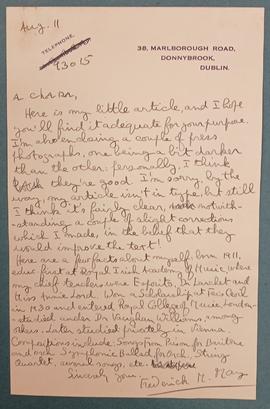 Aug. 11
TELEPHONE,
93015
38, MARLBOROUGH ROAD,
DONNYBROOK,
DUBLIN.
A Chara,
Here is my little article, and I hope
you'll find it adequate for your purpose.
I'm also enclosing a couple of press
photographs, one being a bit darker
than the other: personally, I think
they're good. I'm sorry by the
way, my article isn't in type, but still
I think it's fairly clear, notwith-
-standing a couple of slight corrections
which I made, in the belief that they
would improve the text!
Here are a few facts about myself: born 1911,
educ first at Royal Irish Academy of Music, where
my chief teachers were Esposito, Dr Larchet and
Miss Annie Lord. Won a Scholarship at Feis Ceoil
in 1930 and entered Royal College of Music, London-
-studied under Dr Vaughan Williams, among
others. Later studied privately in Vienna.
Compositions include: Songs from Prison for Baritone
and orch Symphonic Ballad for orch. String
Quartet, several songs, etc.
Sincerely yours
Frederick M. May